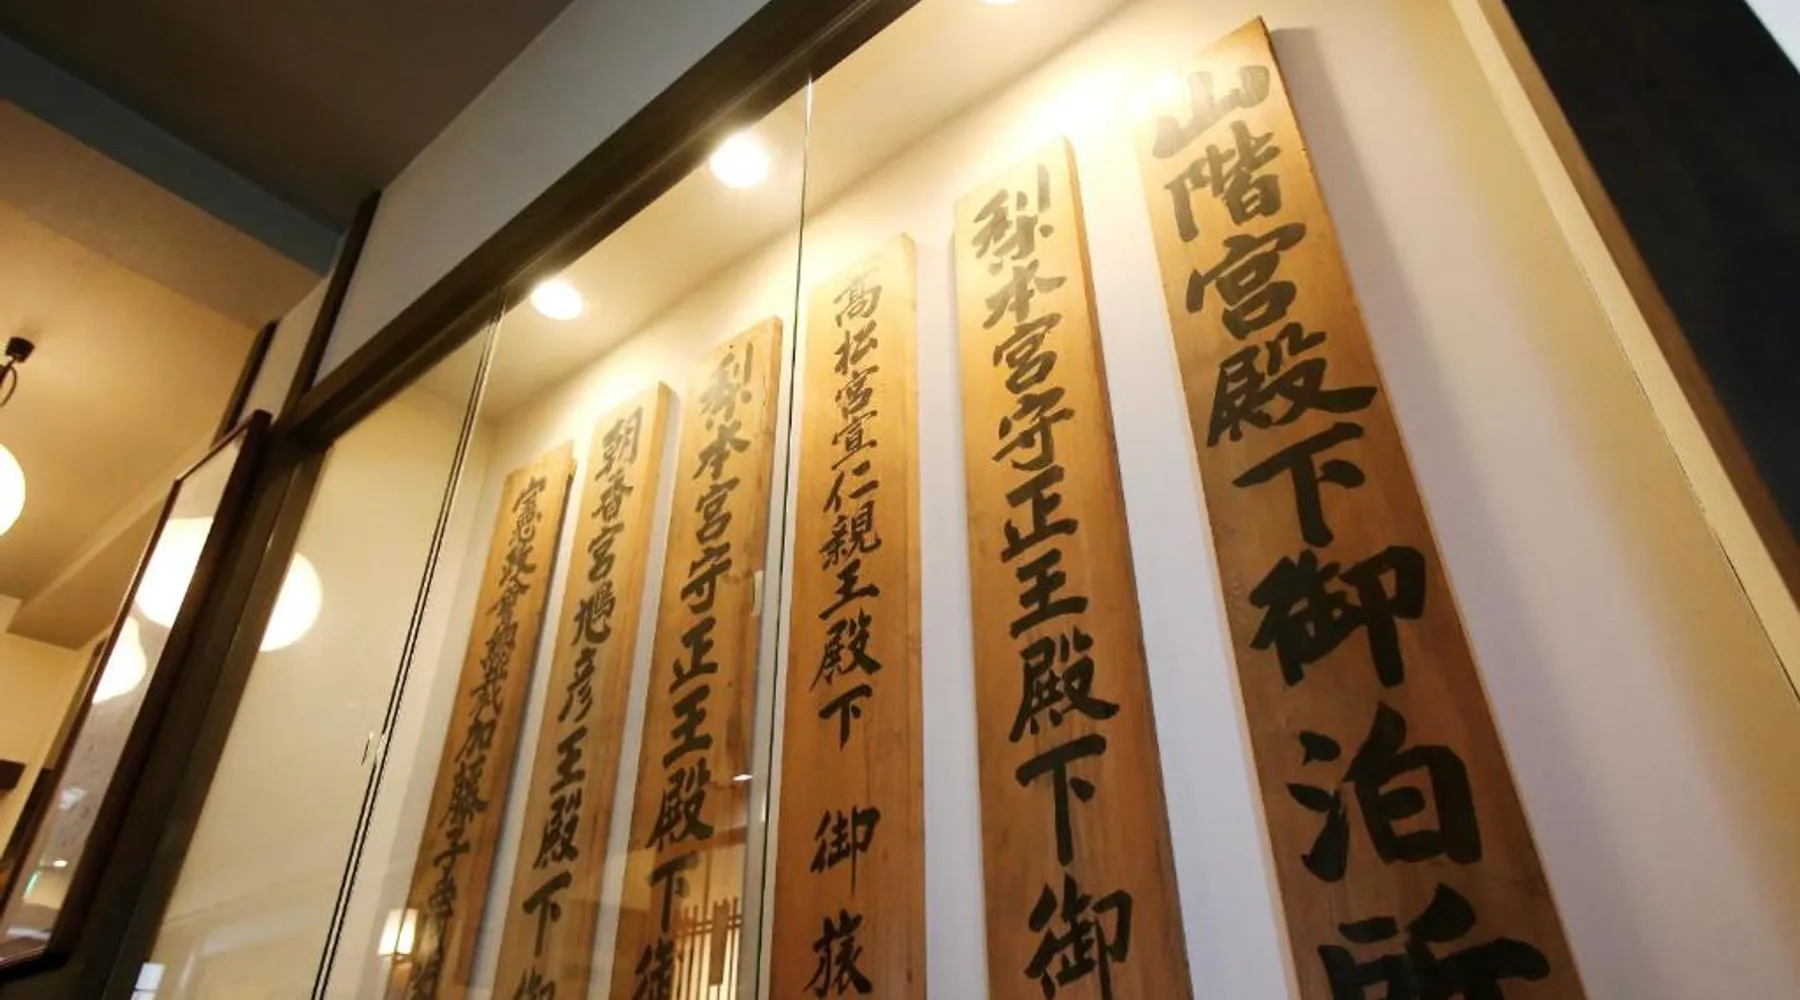 山階宮殿下御泊所
梨本宮守正王殿下御
高松宮宣仁親王殿下 御旅
梨本宮守正王殿下御
朝香宮鳩彦王殿下御
憲政會總裁加藤子爵